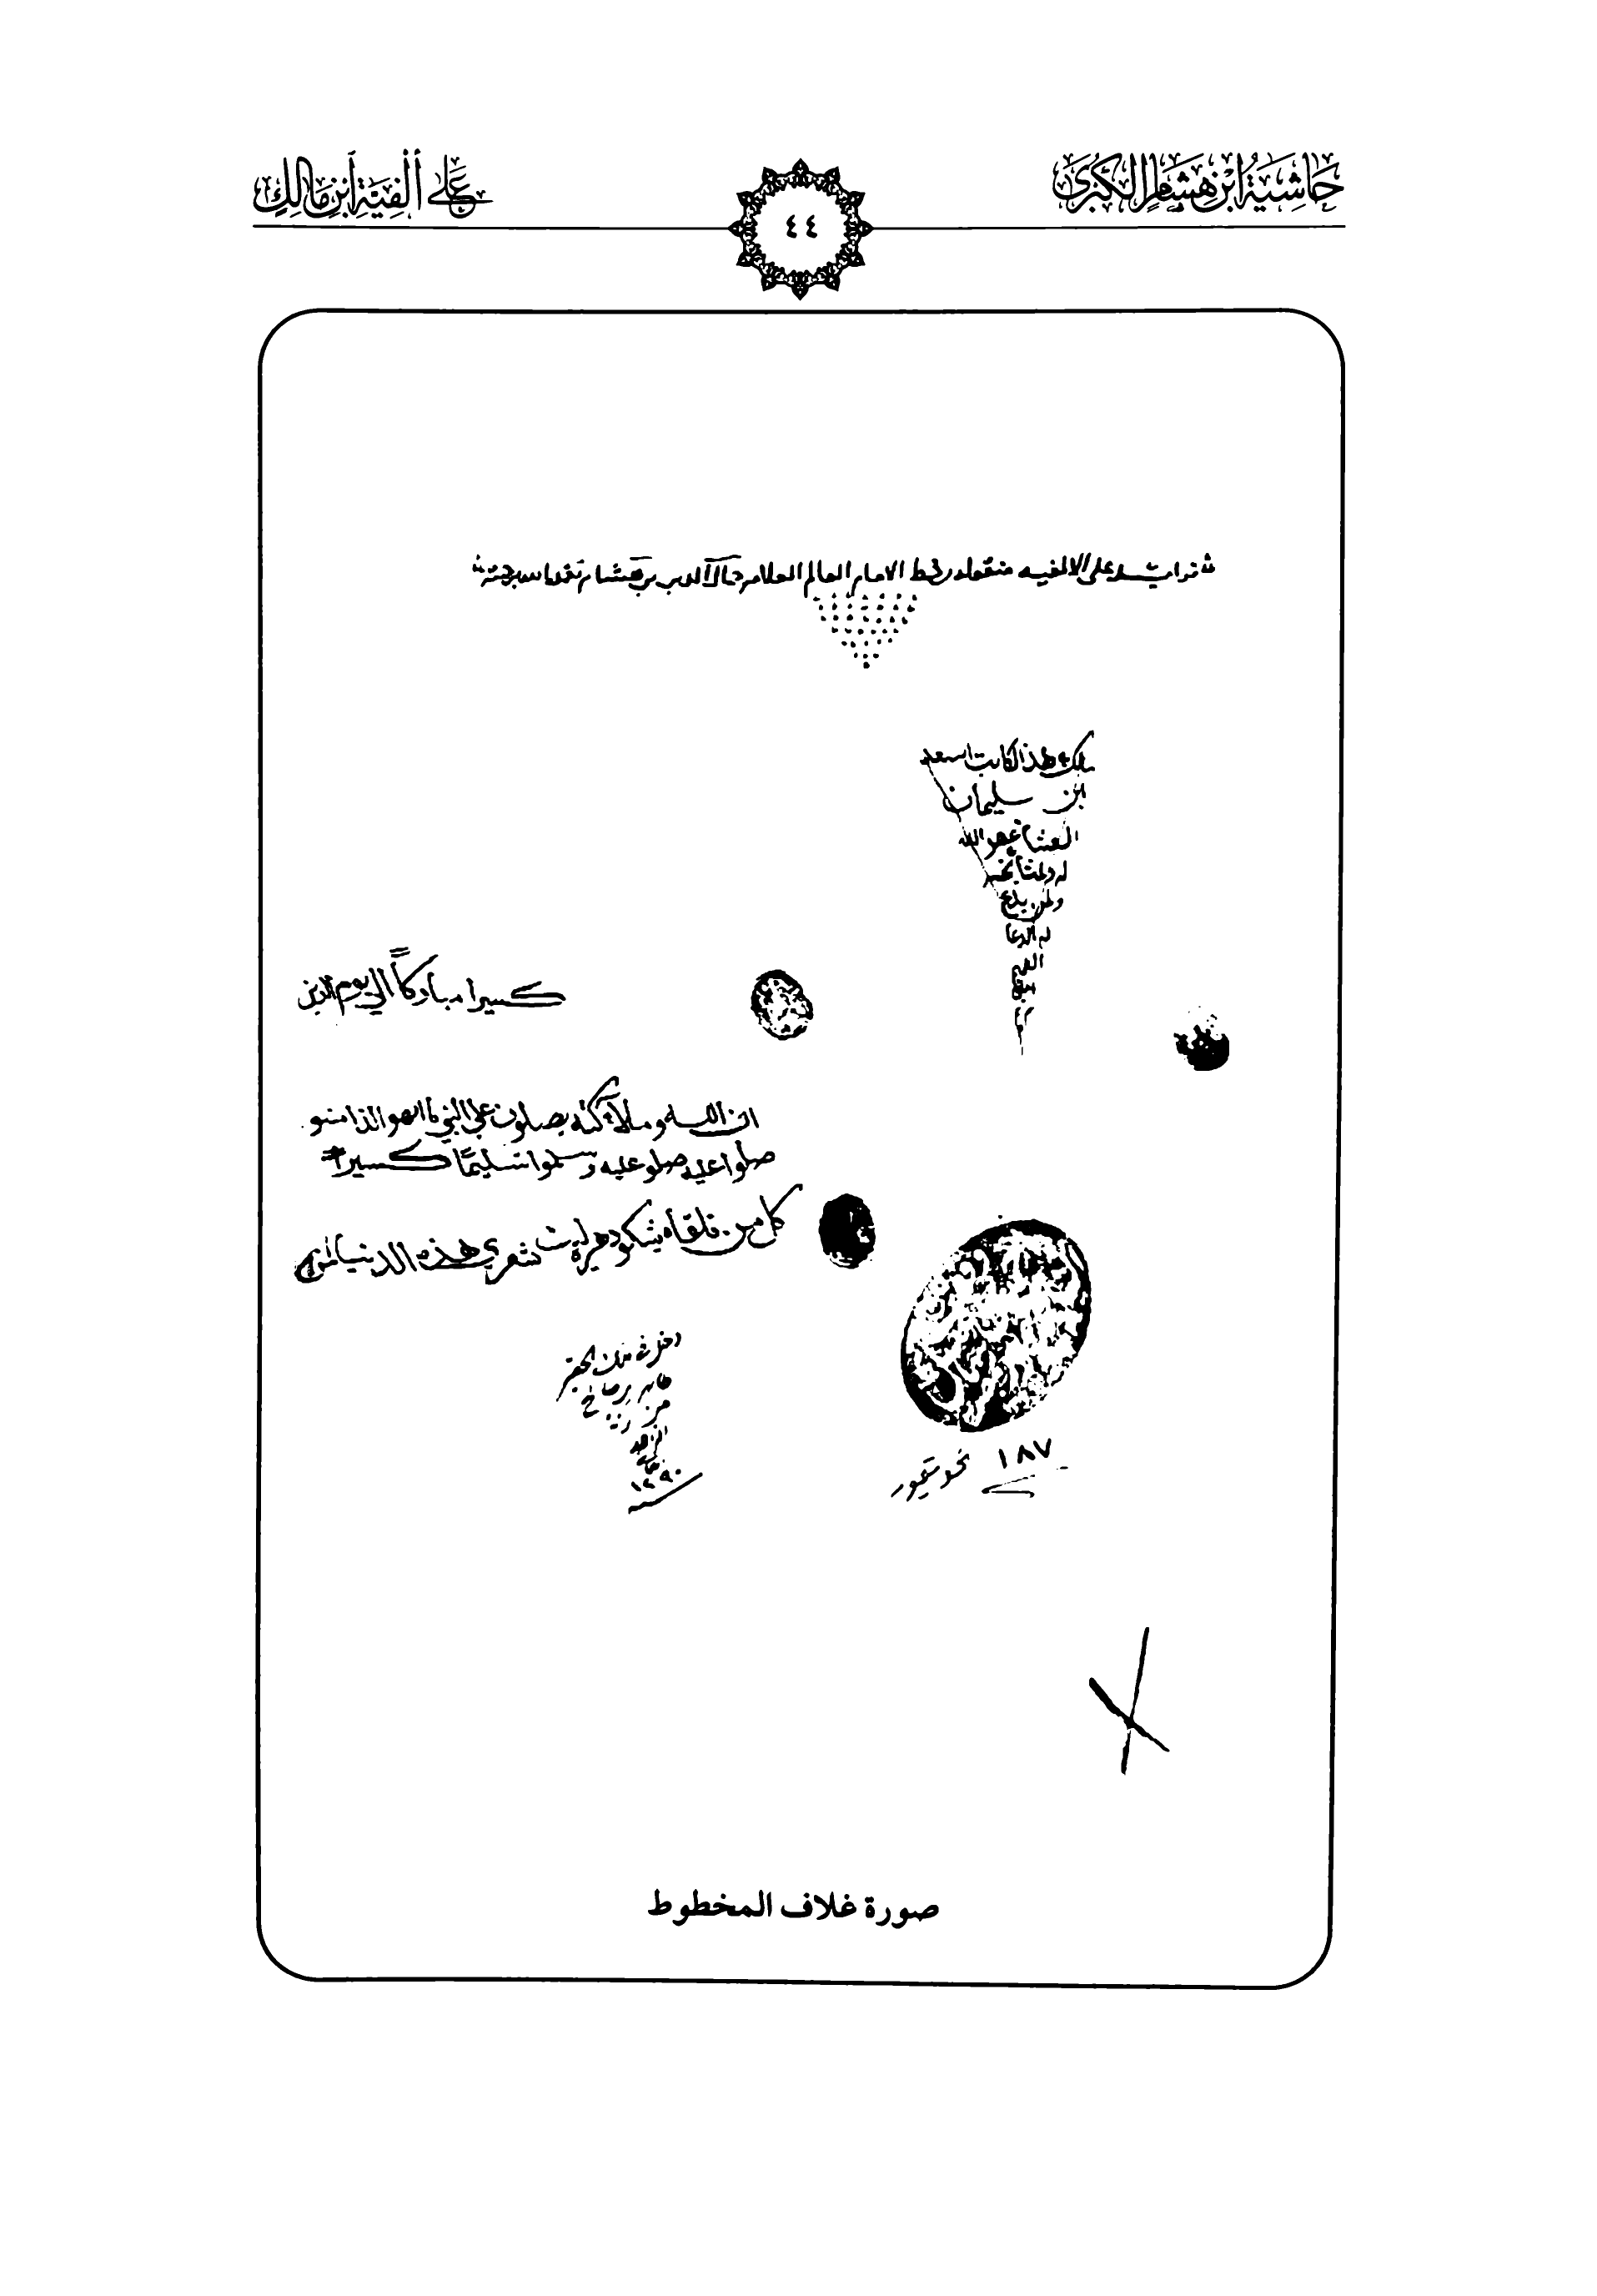 حَاشِيَةُ ابْنِ هِشَامٍ الكُبْرَىٰ
٤٤
عَلَى أَلْفِيَّةِ ابْنِ مَالِكٍ
على الالفيه منقوله من خط الامام العالم العلامه جمال الدين بن هشام تغمده الله برحمته
ملك هذا الكتاب اسعد
ابن سليمان
غفر الله
له
ولمن
له الدعا
كسيرا مباركاً الى يوم الدين
ان الله وملائكته يصلون على النبي
صلوا عليه صلو عليه وسلموا تسليمًا كسيرا
كل من نلقاه يشكو دهره ليت شعري هذه الدنيا لمن
من
١٢٩٠
١٨٧ نحو تيمور
صورة غلاف المخطوط